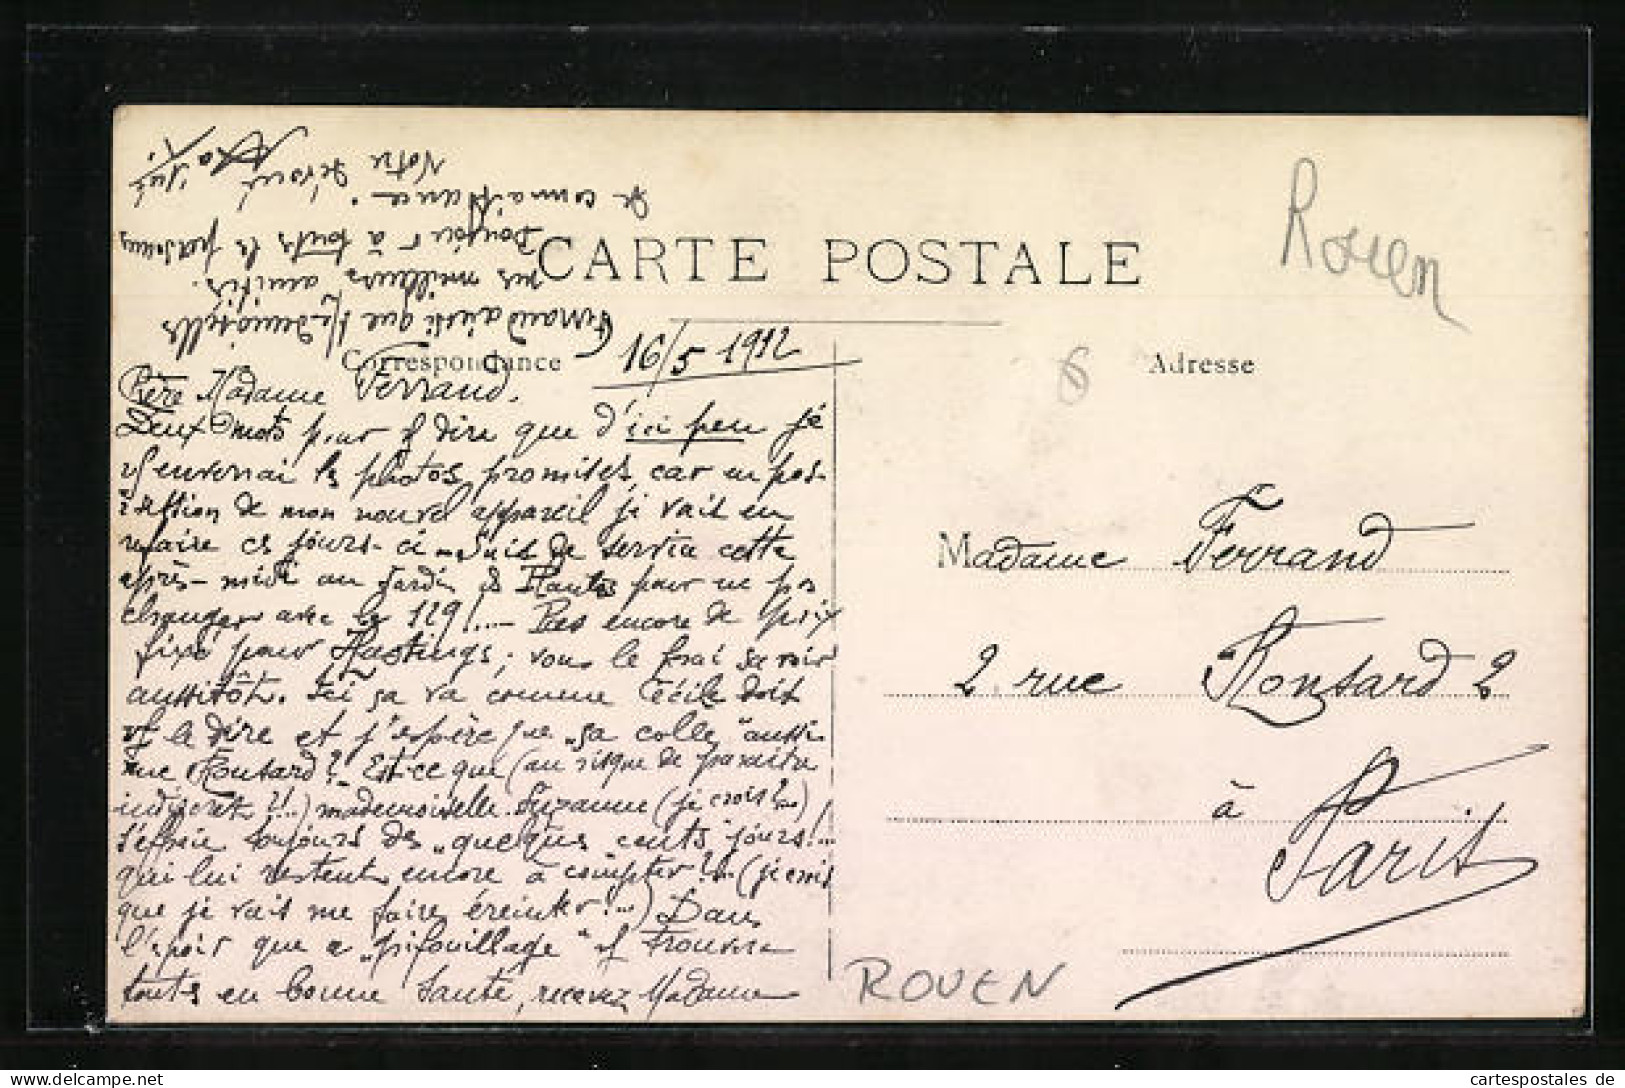 CARTE POSTALE
Correspondance
Adresse
Rouen
6
16/5 1912
Chère Madame Ferrand.
Deux mots pour dire que d'ici peu je
enverrai les photos promises, car en pos-
session de mon nouvel appareil je vais en
refaire ces jours-ci. Suis de service cette
après-midi au Jardin des Plantes pour ne pas
changer avec le 129!... Pas encore de prix
fixé pour Hastings; vous le ferai savoir
aussitôt. Ici ça va comme Cécile doit
le dire et j'espère que "ça colle" aussi
rue Ronsard? Est-ce que (au risque de paraître
indiscret?!...) mademoiselle Suzanne (je crois?...)
s'effraie toujours des "quelques cents jours!...
qui lui restent encore à compter?!... (je crois
que je vais me faire éreinter!...) Dans
l'espoir que ce "gifouillage" trouvera
toutes en bonne santé, recevez Madame
Ferrand ainsi que Demoiselles
mes meilleurs amitiés.
Bonjour à toutes les personnes
de connaissance.
Votre dévoué
Madame Ferrand
2 rue Ronsard 2
à Paris
ROUEN
www.cartespostales.de
cartespostales de